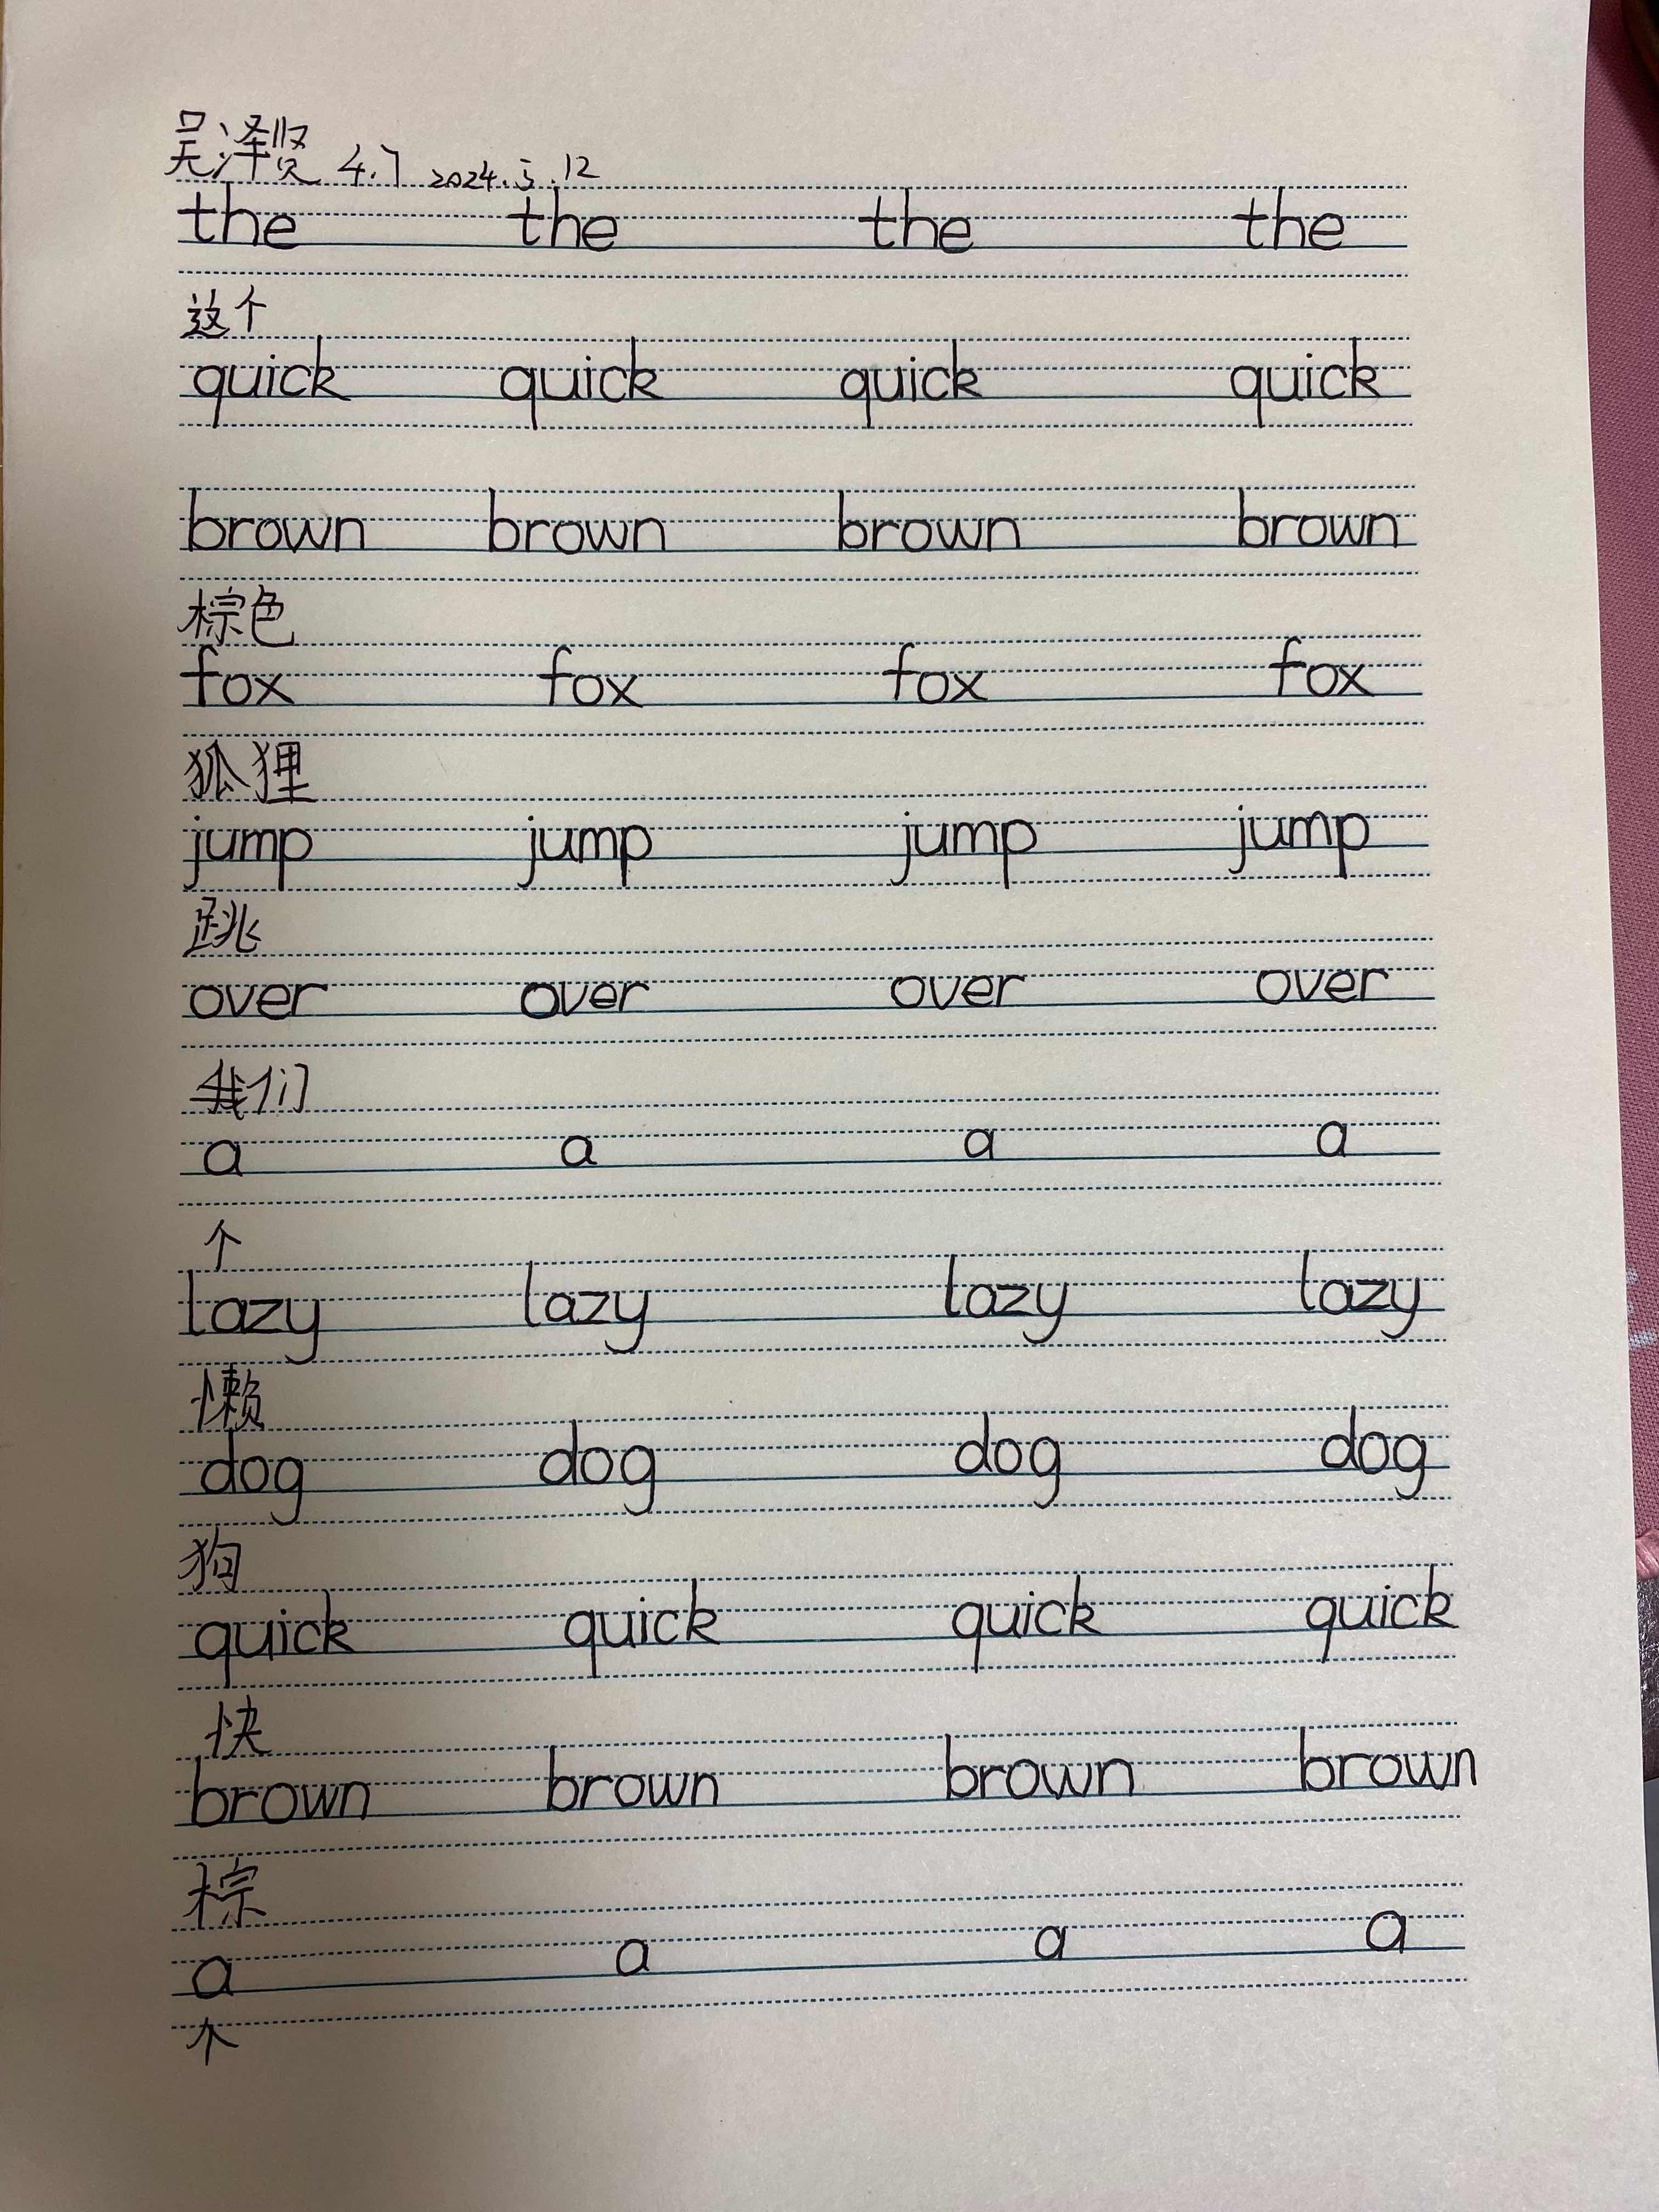 吴泽贤 4.7 2024.5.12
the the the the
这个
quick quick quick quick
brown brown brown brown
棕色
fox fox fox fox
狐狸
jump jump jump jump
跳
over over over over
我们
a a a a
个
lazy lazy lazy lazy
懒
dog dog dog dog
狗
quick quick quick quick
快
brown brown brown brown
棕
a a a a
个